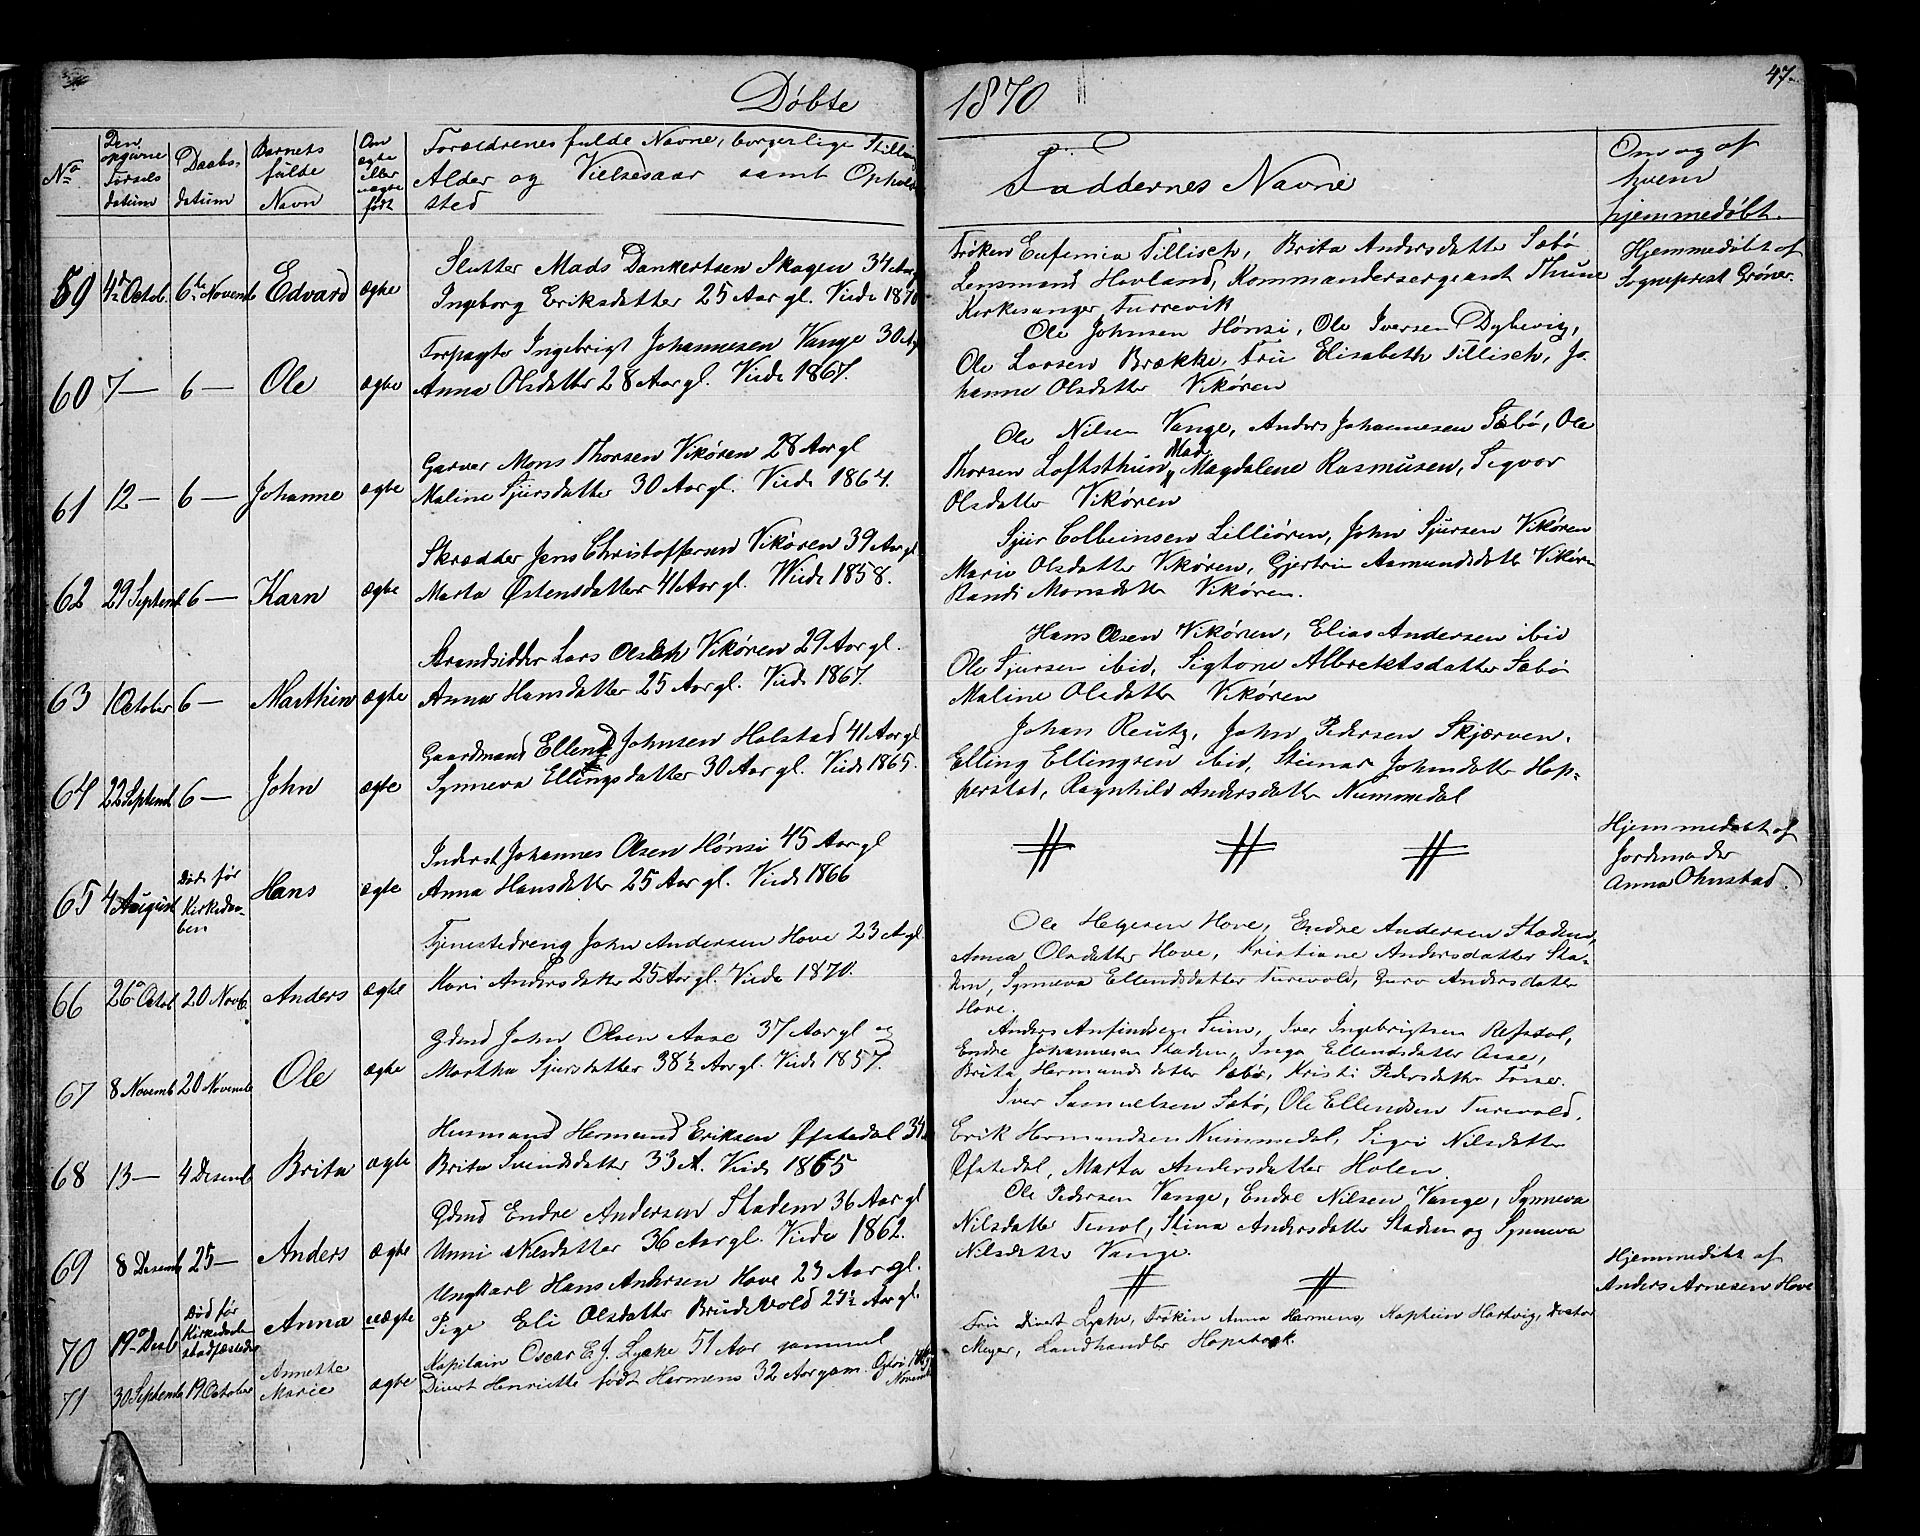 Døbte
1870
47
No
Den opgivne Fødselsdatum
Daabsdatum
Barnets fulde Navn
Om ægte eller uægte født
Forældrenes fulde Navne, borgerlige Stilling
Alder og Vielsesaar samt Ophold
sted
Faddernes Navne
Om og af
hvem
hjemmedøbt.
Slutter Mads Dankertsen Skagen 34 Aar
59 4de Octob. 6te Novemb Edvard ægte Ingeborg Eriksdatter 25 Aar gl. Viede 1870
Frøken Eufemia Tillisch, Brita Andersdatter Sæbø
Lensmand Hovland, Kommandersergeant Thune
Kirkesanger Turrevik
Hjemmedøbt af
Sogneprest Grøner.
Forpagter Ingebrigt Johannesen Vange 30 A
60 7 — 6 — Ole ægte Anna Olsdatter 28 Aar gl. Viede 1867.
Ole Johnsen Hønsi, Ole Iversen Dybevig,
Ole Larsen Brække, Fru Elisabeth Tillisch, Jo-
hanne Olsdatter Vikøren
Garver Mons Thorsen Vikøren 28 Aar gl
61 12 — 6 — Johanne ægte Maline Sjursdatter 30 Aar gl. Viede 1864.
Ole Nilsen Vange, Anders Johannesen Sæbø, Ole
Thorsen Loftsthun, Mad. Magdalene Rasmusen, Sigvor
Olsdatter Vikøren
Skrædder Jens Christoffersen Vikøren 39 Aar gl
62 29 Septemb 6 — Karn ægte Marta Østensdatter 41 Aar gl. Viede 1858.
Sjur Colbeinsen Lilliøren, John Sjursen Vikøren
Marie Olsdatter Vikøren, Gjertrin Aamundsdatter Vikøren
Randi Monsdatter Vikøren.
Strandsidder Lars Olsen Vikøren 29 Aar gl.
63 1 October 6 — Marthin ægte Anna Hansdatter 25 Aar gl. Viede 1867.
Hans Olsen Vikøren, Elias Andersen ibid
Ole Sjursen ibid, Sigtone Albrektsdatter Sæbø
Maline Olsdatter Vikøren
Gaardmand Ellend Johnsen Halstad 41 Aar gl
64 22 Septemb 6 — John ægte Synneva Ellingsdatter 30 Aar gl. Viede 1865.
Johan Reutz, John Pedersen Skjærven.
Elling Ellingsen ibid, Stienar Johnsdatter Hop-
perstad, Ragnhild Andersdatter Nummedal
Inderst Johannes Olsen Hønsi 45 Aar gl
65 4 August Død før Kirkedaaben Hans ægte Anna Hansdatter 25 Aar gl. Viede 1866
Hjemmedøbt af
Jordemoder
Anna Ohnstad.
Tjenestedreng John Andersen Hove 23 A gl.
66 26 Octob 20 Novb. Anders ægte Kari Andersdatter 25 Aar gl. Viede 1870.
Ole Helgesen Hove, Endre Andersen Stadem,
Anna Olsdatter Hove, Kristiane Andersdatter Sta-
dem, Synneva Ellendsdatter Turevold, Guro Andersdatter
Hove.
Gdmd John Olsen Aase 37 Aar gl og
67 8 Novemb 20 Novemb Ole ægte Martha Sjursdatter 38½ Aar gl. Viede 1857.
Anders Anfindsen Feim, Iver Ingebrigtsen Refsdal,
Endre Johannesen Stadem, Inga Ellendsdatter Aase,
Brita Hermundsdatter Sæbø, Kristi Pedersdatter Tosse.
Husmand Hermund Eriksen Øfstedal 34
68 13 — 4 Desemb Brita ægte Brita Svendsdatter 33 A. Viede 1865
Iver Samuelsen Sæbø, Ole Ellendsen Turevold.
Erik Hermundsen Nummedal, Sigri Nilsdatter
Øfstedal, Marta Andersdatter Holen
Gdmd Endre Andersen Stadem 36 Aar gl
69 8 Desemb 25 — Anders Ægte Unni Nilsdatter 36 Aar gl. Viede 1862.
Ole Pedersen Vange, Endre Nilsen Vange, Synneva
Nilsdatter Tenol, Stina Andersdatter Stadem og Synneva
Nilsdatter Vange.
Ungkarl Hans Andersen Hove 23 Aar gl.
70 19 Desb Død før Kirkedaab stadfæstedes Anna uægte Pige Eli Olsdatter Brudevold 27½ Aar gl.
Hjemmedøbt af
Anders Arnesen Hove
Kapitain Oscar E. J. Lyche 51 Aar gammel
71 30 Septemb 19 October Annette Marie ægte Divert Henriette født Harmens 32 Aar gam.
Fru Divert Lyche, Frøken Anna Harmens, Kaptein Hartvig, Doctor
Meyer, Landhandler Hopstock.